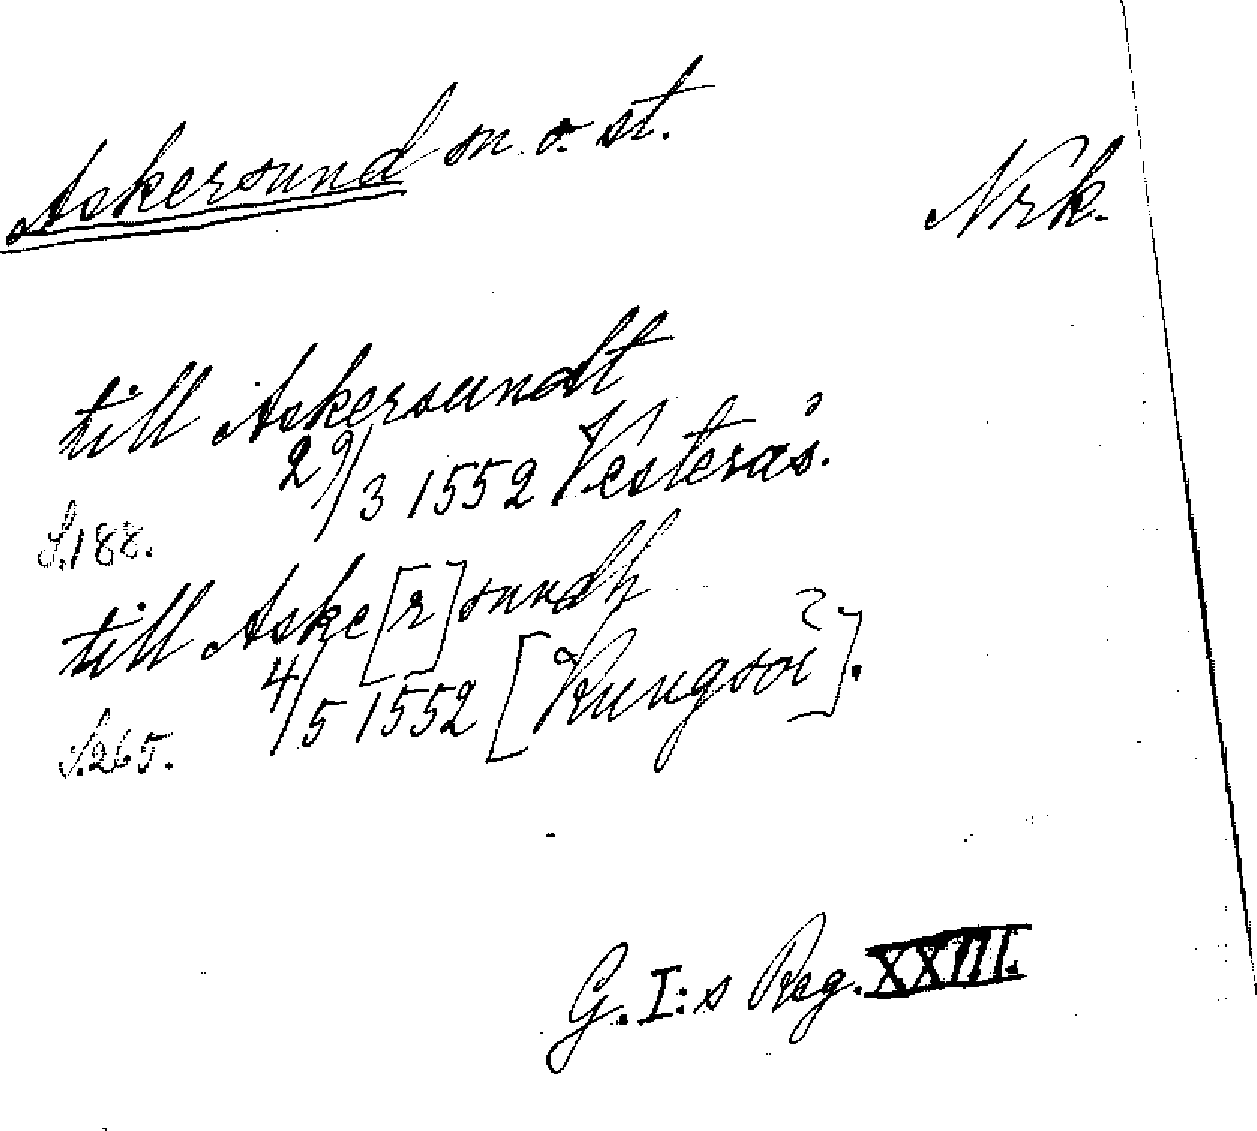 Askersund sn. o. st.
Nrk.
till Askersundt
29/3 1552 Vesterås.
S. 188.
till Aske[r]sundh
4/5 1552 [Kungsör].
S. 265.
G. I:s Reg. XXIII.